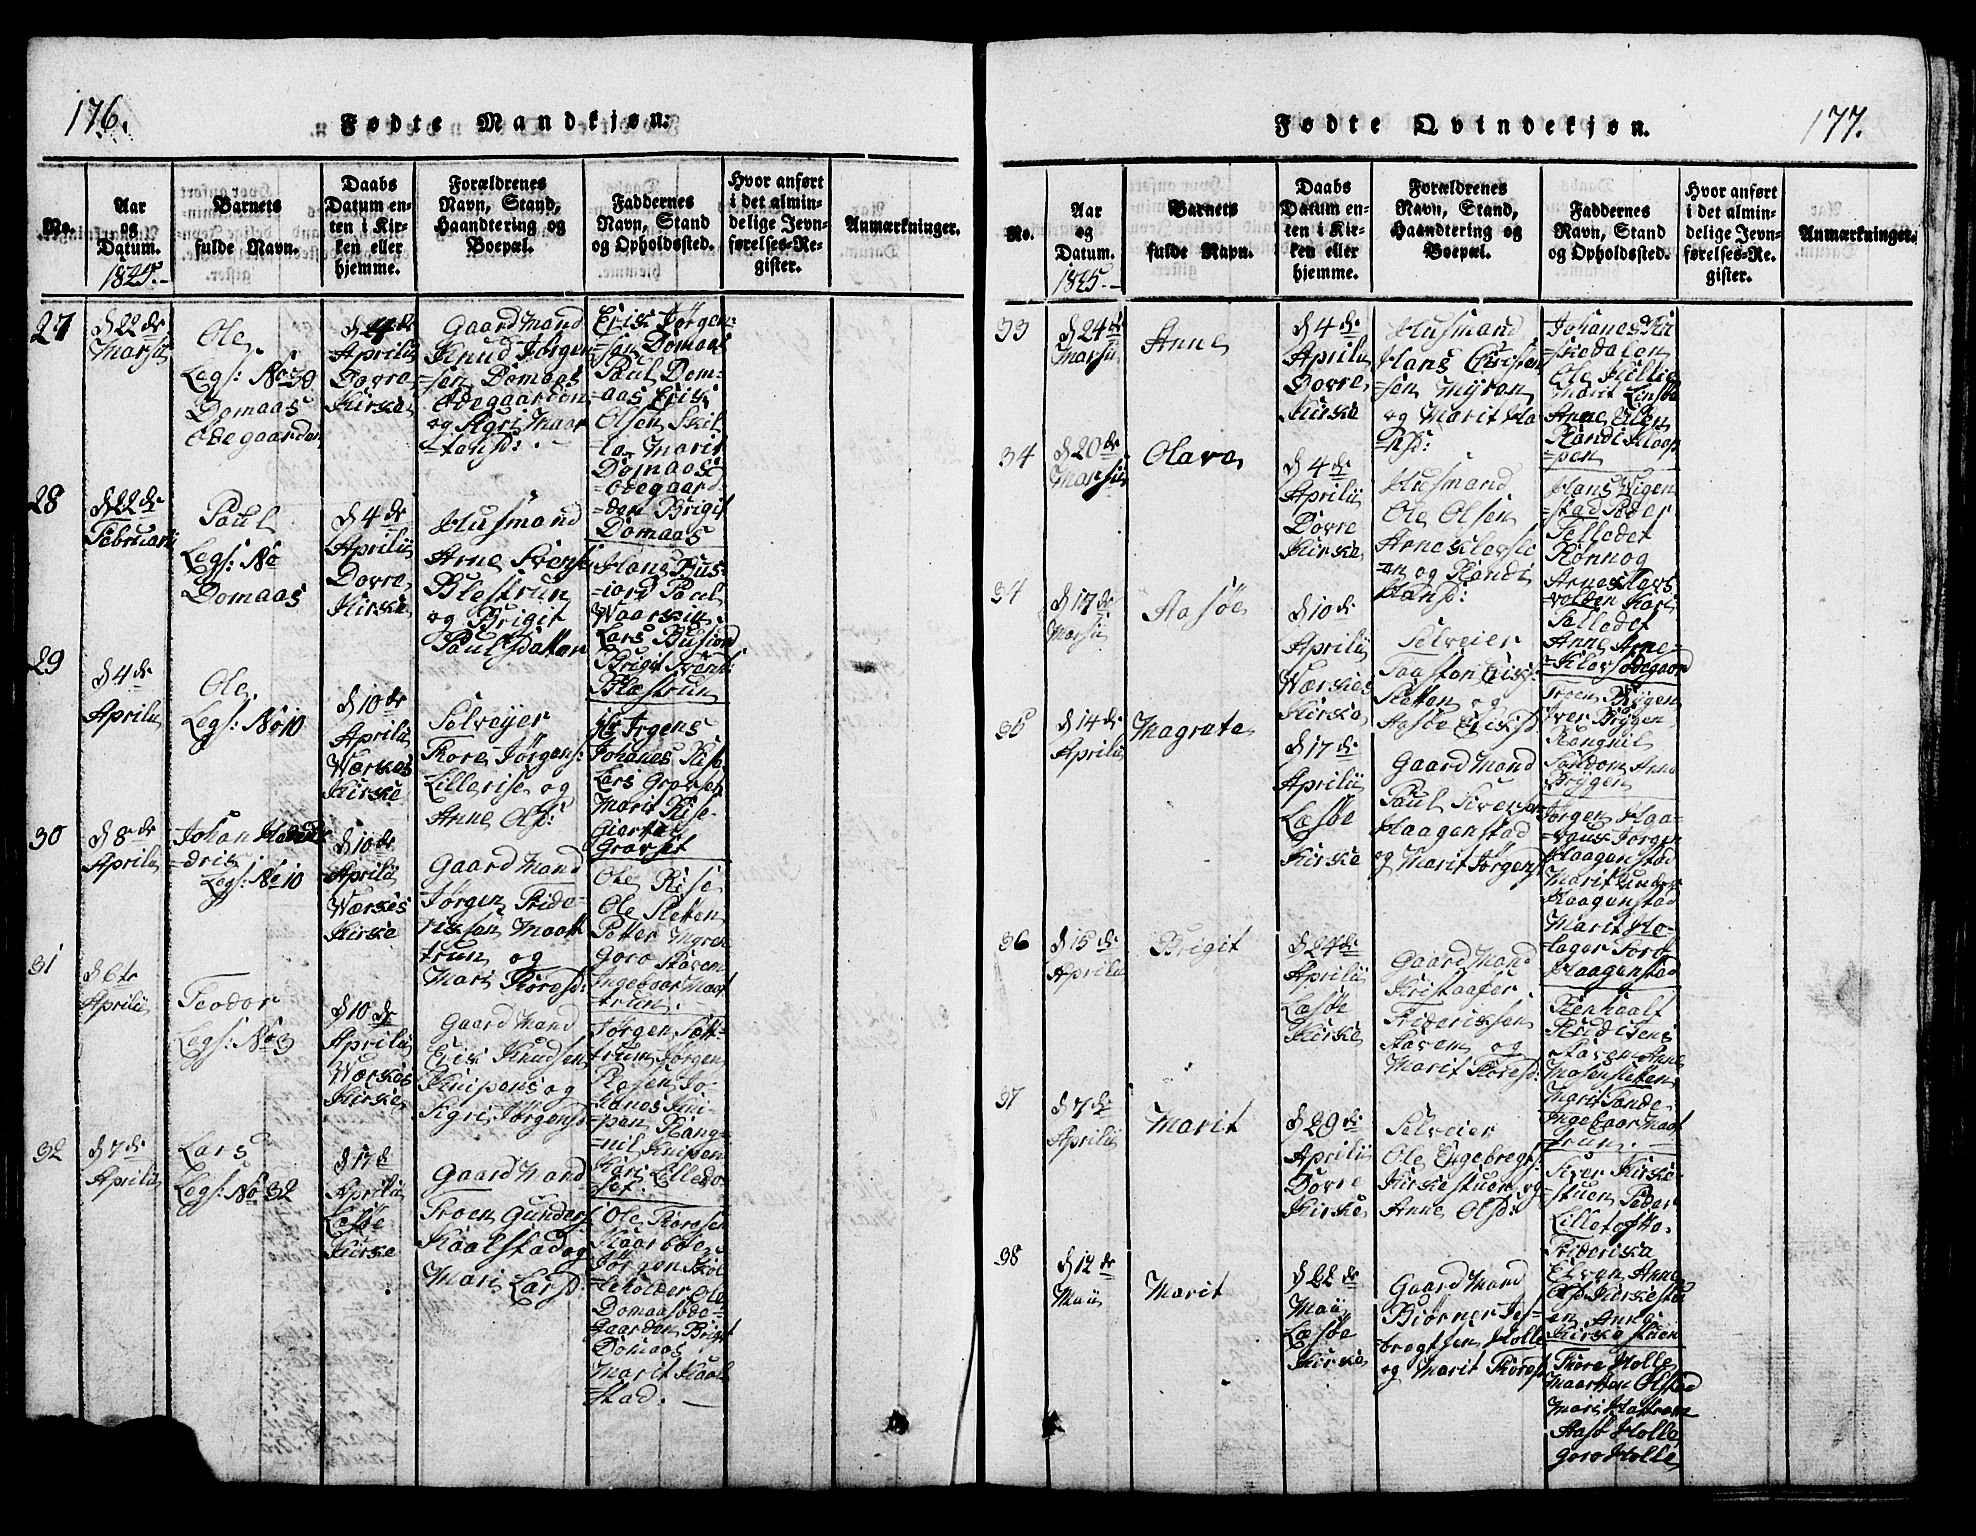 176.
Fødte Mandkjøn.
No.
Aar
og
Datum.
1825.
Barnets
fulde Navn.
Daabs
Datum en-
ten i Kir-
ken eller
hjemme.
Forældrenes
Navn, Stand,
Haandtering og
Boepæl.
Faddernes
Navn, Stand
og Opholdssted.
Hvor anført
i det almin-
delige Jevn-
førelses-Re-
gister.
Anmærkninger.
27
d 22de
Marsii
Ole
Legs: No 39
Domaas
Ødegaarden
Aprilii
Dovre
Kirke
Gaardmand
Knud Jørgen-
-sen Domaas
Ødegaarden
og
Erik Jørgen-
-sen Domaas
Paul Dom-
-aas Erik
Olsen Skit-
-la Marit
Domaas-
-ødegaar-
-den Brigit
Domaas
28
d 22de
Februarii
Paul
Legs: No
Domaas
d 4de
Aprilii
Dovre
Kirke
Husmand
Arne
Blestrun
og Brigit
Paulsdatter
Hans Bus-
-iord Paul
Lars Busiord
Brigit
Blæstrun
29
d 4de
Aprilii
Ole
Legs: No 10
d 10de
Aprilii
Værkes
Kirke
Selveijer
Thore Jørgens:
Lillerise og
Anne Olsd:
Johanes Rise
Lars Gravset
Marit Rise
Gravset
30
d 8de
Aprilii
Johan
-dris
Legs: No 10
d 10de
Aprilii
Værkes
Kirke
Gaardmand
Jørgen Fride-
-riksen Maat-
-trun og
Mari Thoresd:
Ole Rise
Ole Sletten
Petter
Goro Staven
Ingebaar Maat-
-trun.
31
d 6te
Aprilii
Teodor
Legs: No 3
d 10de
Aprilii
Værkes
Kirke
Gaardmand
Erik Knudsen
Knipens og
Sigri Jørgensd
Jørgen
-trun Jørgen
Rosen Jo-
-hanes Kni-
-pen Rang-
-nil Knipen
Kari Lilledo-
-set.
32
d 7de
Aprilii
Lars
Legs: No 32
d 17de
Aprilii
Læsøe
Kirke
Gaardmand
Troen Gunders
Kaalstad og
Mari Larsd:
Ole Thoresen
Skaarbøe
Jørgen Skol-
-leholder Ole
Domaasøde-
-gaarden Brigit
Domaas
Marit Kaal-
-stad.
177.
Fødte Qvindekjøn.
No.
Aar
og
Datum.
1825.
Barnets
fulde Navn.
Daabs
Datum en-
ten i Kir-
ken eller
hjemme.
Forældrenes
Navn, Stand,
Haandtering og
Boepæl.
Faddernes
Navn, Stand
og Opholdssted.
Hvor anført
i det almin-
delige Jevn-
førelses-Re-
gister.
Anmærkninger.
33
d 24de
Marsii
Anne
d 4de
Aprilii
Dovre
Kirke
Husmand
Hans Cristen-
-sen Myran
og Marit Ha-
-nsd:
Johanes Ki-
-skedalen
Ole Killie
Marit
Anne Eilen
Randi Klop-
-pen
34
d 20de
Marsii
Olava
d 4de
Aprilii
Dovre
Kirke
Husmand
Ole Olsen
Arneklevsle
-en og Randi
Hansd:
Hans Vigen-
-stad Peder
Selledet
Rønnog
Arneklevs-
-volden Kari
Selledet
Anne Arne-
-klevsødegaard
34
d 17de
Marsii
Aasøe
d 10de
Aprilii
Værkes
Kirke
Selveier
Taasten Eriks:
Sletten og
Aasøe Eriksd
Troen Brygen
Iver Brygen
Rangnil
Søndom Anne
Brygen
35
d 14de
Aprilii
Magrate
d 17de
Aprilii
Læsøe
Kirke
Gaardmand
Paul Sivers
Haagenstad
og Marit Jørgens
Jørgen Haa-
Jørgen
Haagenstad
Marit
Haagenstad
Marit Ho-
-lager Goro
Haagenstad
36
d 15de
Aprilii
Brigit
d 24de
Aprilii
Læsøe
Kirke
Gaardmand
Kristaafer
Frideriksen
Staven og
Marit Thoresd:
Staven Anne
Mosensletten
Marit Sande
Ingebaar Maat-
-trun.
37
d 7de
Aprilii
Marit
d 29de
Aprilii
Dovre
Kirke
Selveier
Ole Engebregs:
Kirkestuen og
Anne Olsd:
Iver Kirke-
-stuen Peder
Lilletofte
Friderika
Elven Anne
Olsd: Kirkestu-
-en Anne
Kirkestuen
38
d 12de
Maii
Marit
d 22de
Maii
Læsøe
Kirke
Gaardmand
Biørner
-bregtsen Holle
og Marit Thoresd
Thore Holle
Maarten Olstad
Mari Hattrem
Aasø Holle
Goro Holle